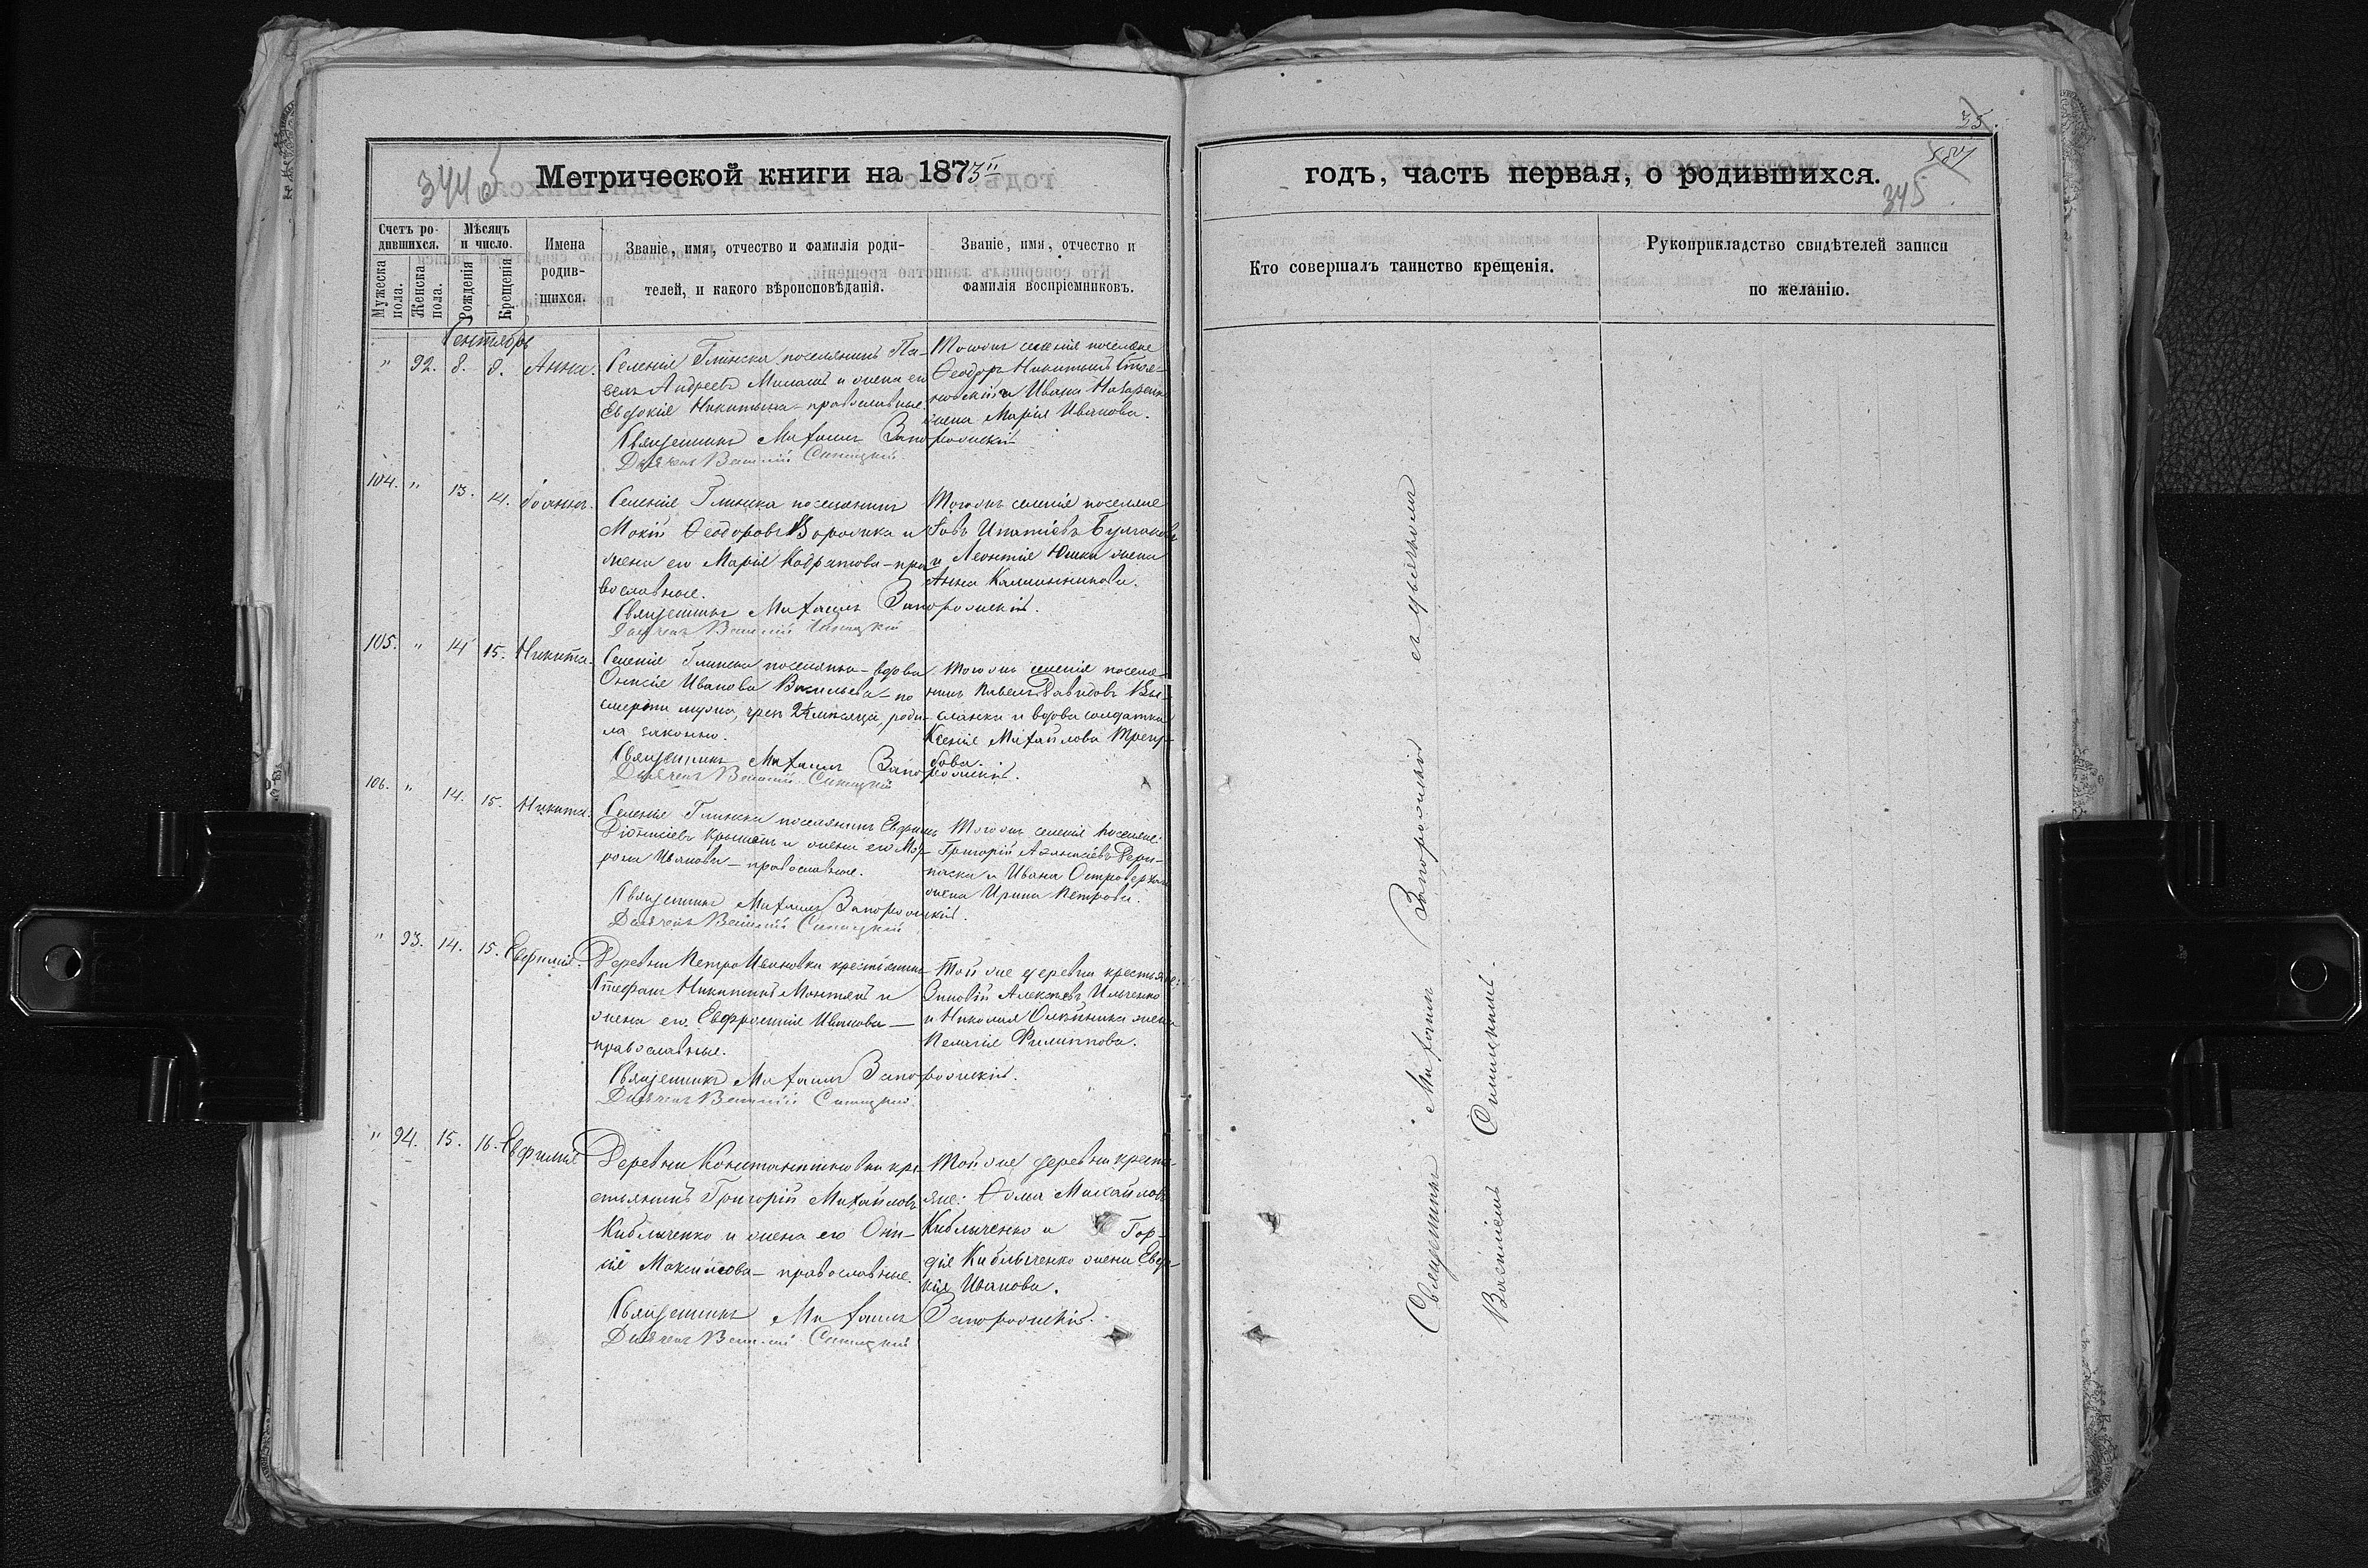 35.
587
3445
Метрической книги на 1873й
годъ, часть первая, о родившихся.
345
Счетъ родившихся.
Мужеска пола.
Женска пола.
Мѣсяцъ и число.
Рожденія
Крещенія
Имена родившихся.
Званіе, имя, отчество и фамилія родителей, и какого вѣроисповѣданія.
Званіе, имя, отчество и фамилія воспріемниковъ.
Кто совершалъ таинство крещенія.
Рукоприкладство свидѣтелей записи по желанію.
Сентябрь
" 92. 8. 8. Анна.
Селенія Глинска поселянинъ Па-
велъ Андреевъ и жена его
Евдокія Никитина - православные.
Тогожъ селенія поселяне
Феодоръ Никитинъ
и Ивана
жена Марія Иванова.
Священникъ Михаилъ Запорожскій
Дьячекъ Василій Синицкій
104. " 13. 14. Іоаннъ.
Селенія Глинска поселянинъ
Мокій Феодоровъ и
жена его Марія Кодратова - пра-
вославные.
Тогожъ селенія поселяне
Іовъ Игнатіевъ
и Леонтія Юшки жена
Анна Калинникова.
Священникъ Михаилъ Запорожскій.
Дьячекъ Василій Синицкій
105. " 14 15. Никита.
Селенія Глинска поселянка - вдова
Онисія Иванова Васильева - по
смерти мужа, чрезъ 2½ мѣсяца, роди-
ла законно.
Тогожъ селенія поселя-
нинъ Павелъ Давидовъ
и вдова солдатка
Ксенія Михайлова
Священникъ Михаилъ Запорожскій.
Дьячекъ Василій Синицкій
106. " 14. 15. Никита.
Селенія Глинска поселянинъ Евфимъ
Діонисіевъ и жена его
Иванова - православные.
Тогожъ селенія поселяне:
Григорій Аѳанасіевъ Дери-
паска и Ивана Островерха
жена Ирина Петрова.
Священникъ Михаилъ Запорожскій.
Дьячекъ Василій Синицкій
" 93. 14. 15. Евфимія.
Деревни Петроивановки крестьянинъ
Стефанъ Никитинъ и
жена его Евфросинія Иванова -
православные.
Той же деревни крестьяне:
Зиновій Алексѣевъ Ильченко
и Николая Олейника жена
Пелагія Филиппова.
Священникъ Михаилъ Запорожскій.
Дьячекъ Василій Синицкій
" 94. 15. 16. Евфимія
Деревни Константиновки кре-
стьянинъ Григорій Михайловъ
Кибальченко и жена его Они-
сія Максимова - православные.
Той же деревни крестья-
яне: Фома Михайловъ
Кибальченко и Гор-
дія Кибальченко жена Евдо-
кія Иванова.
Священникъ Михаилъ Запорожскій.
Дьячекъ Василій Синицкій
Священникъ Михаилъ Запорожскій съ дьячкомъ
Василіемъ Синицкимъ.